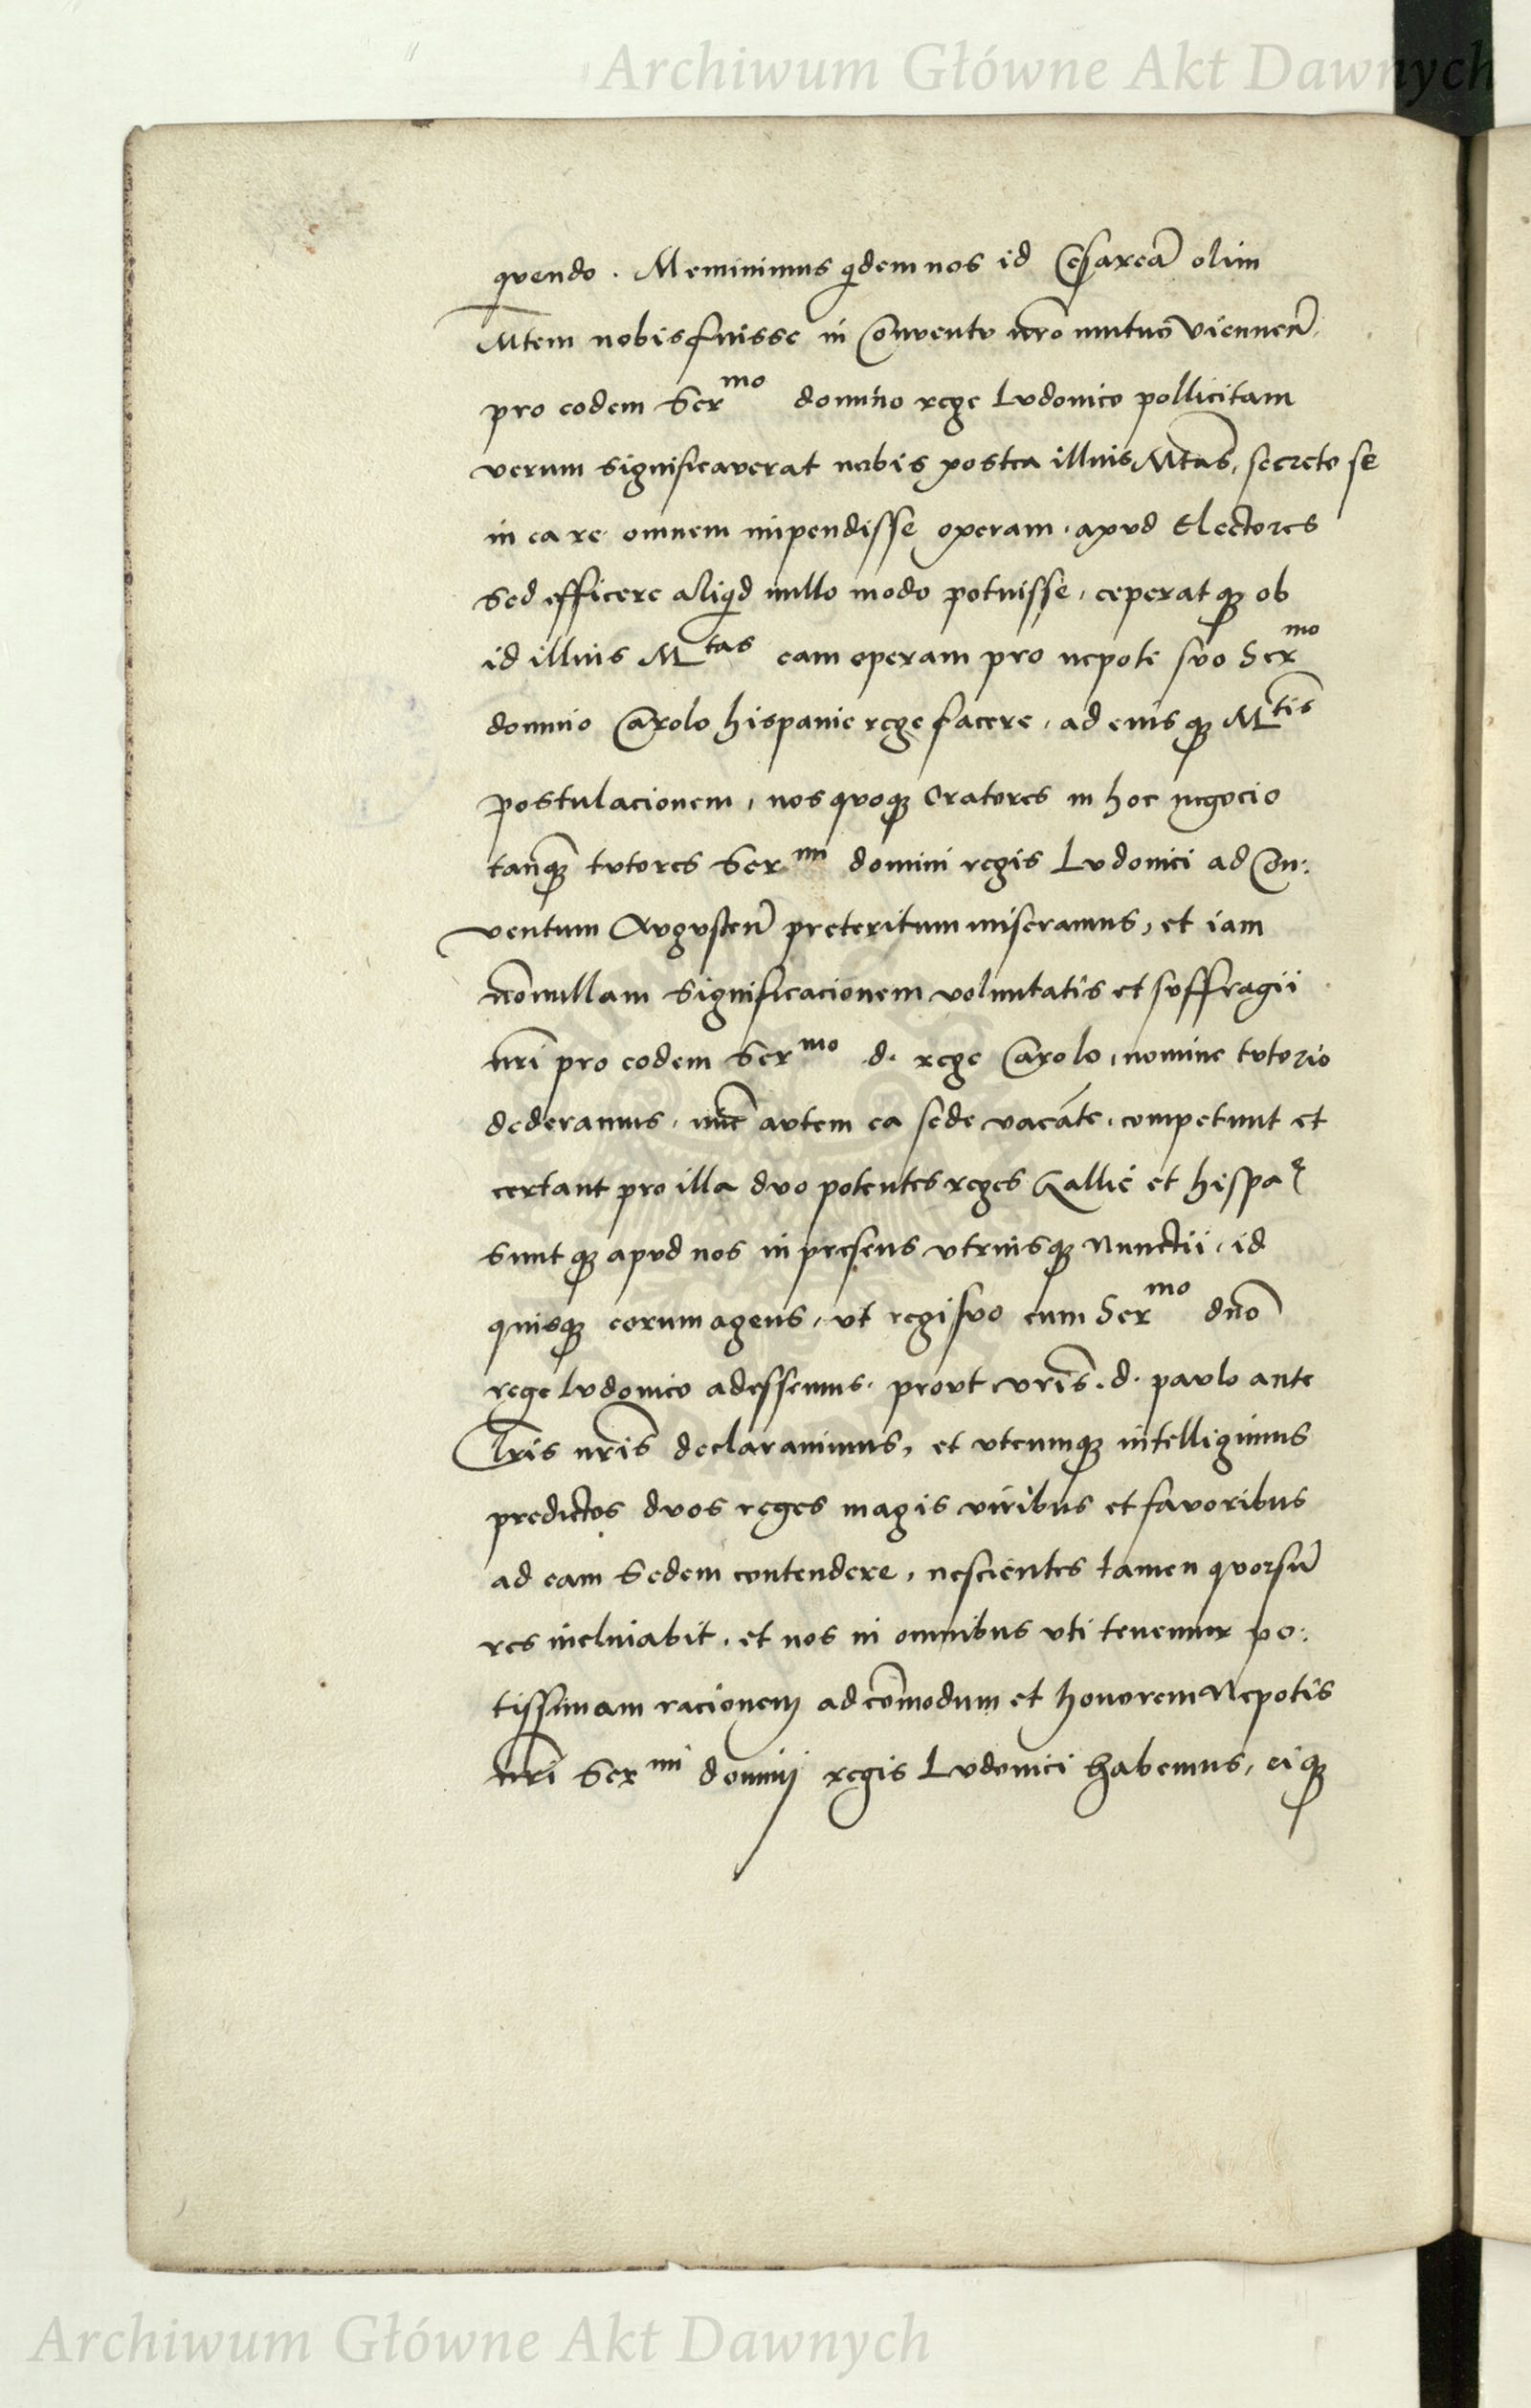 Archiwum Główne Akt Dawnych
quendo. Meminimus qdem nos id Cesareā olim
Mtem nobis fuisse in Conventv nr̄o mutuo viennen̄.
pro eodem Sermo domino rege Lvdovico pollicitam
verum significaverat nobis postea illius Mtas, secreto se
in ea re omnem impendisse operam, apvd Electores
Sed efficere aliqd nullo modo potuisse, ceperatqꝫ ob
id illius Mtas eam operam pro nepote svo Sermo
domino Carolo hispanie rege facere, ad eiusqꝫ Mtis
postulacionem, nos qvoqꝫ Oratores in hoc negocio
tanqꝫ tvtores Sermi domini regis Lvdovici ad Con:
ventum Avgvsten̄ preteritum miseramus, et iam
nōnullam significacionem voluntatis et svffragii
nr̄i pro eodem Sermo d. rege Carolo, nomine tvtorio
dederamus, nūc avtem ea sede vacāte, competunt et
certant pro illa dvo potentes reges Gallie et hispa
Suntqꝫ apvd nos in presens vtriusqꝫ Nunctii, id
quisqꝫ eorum agens, vt regi svo cum Sermo dn̄o
rege lvdovico adessemus, provt vr̄is. d. pavlo ante
Lr̄is nr̄is declaravimus, et vtcumqꝫ intelligimus
predictos dvos reges magis viribus et favoribus
ad eam Sedem contendere, nescientes tamen qvorsū
res inclinabit, et nos in omnibus vti tenemur po:
tissimam racionem ad cōmodum et honorem Nepotis
nr̄i Sermi dominj regis Lvdovici habemus, eiqꝫ
Archiwum Główne Akt Dawnych